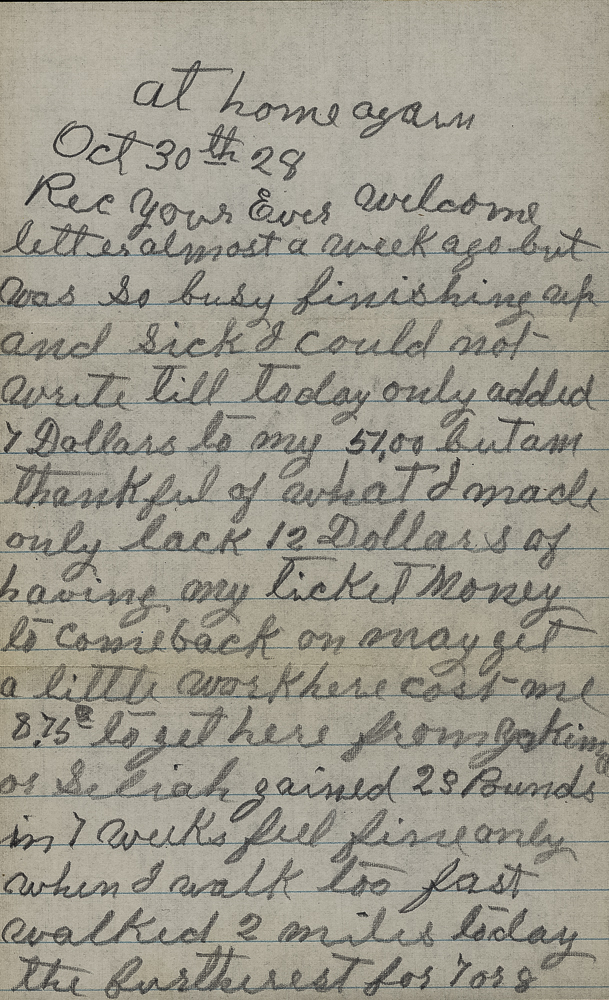 at home again
Oct 30th 28
Rec Your Ever welcome
letter almost a week ago but
was so busy finishing up
and sick I could not
write till today only added
7 Dollars to my 51,00 but am
thankful of what I made
only lack 12 Dollars of
having my ticket Money
to come back on may get
a little work here cost me
8,75 to get here from Yakima
or Seliah gained 23 Pounds
in 7 weeks feel fine only
when I walk too fast
walked 2 miles today
the furtherest for 7 or 8